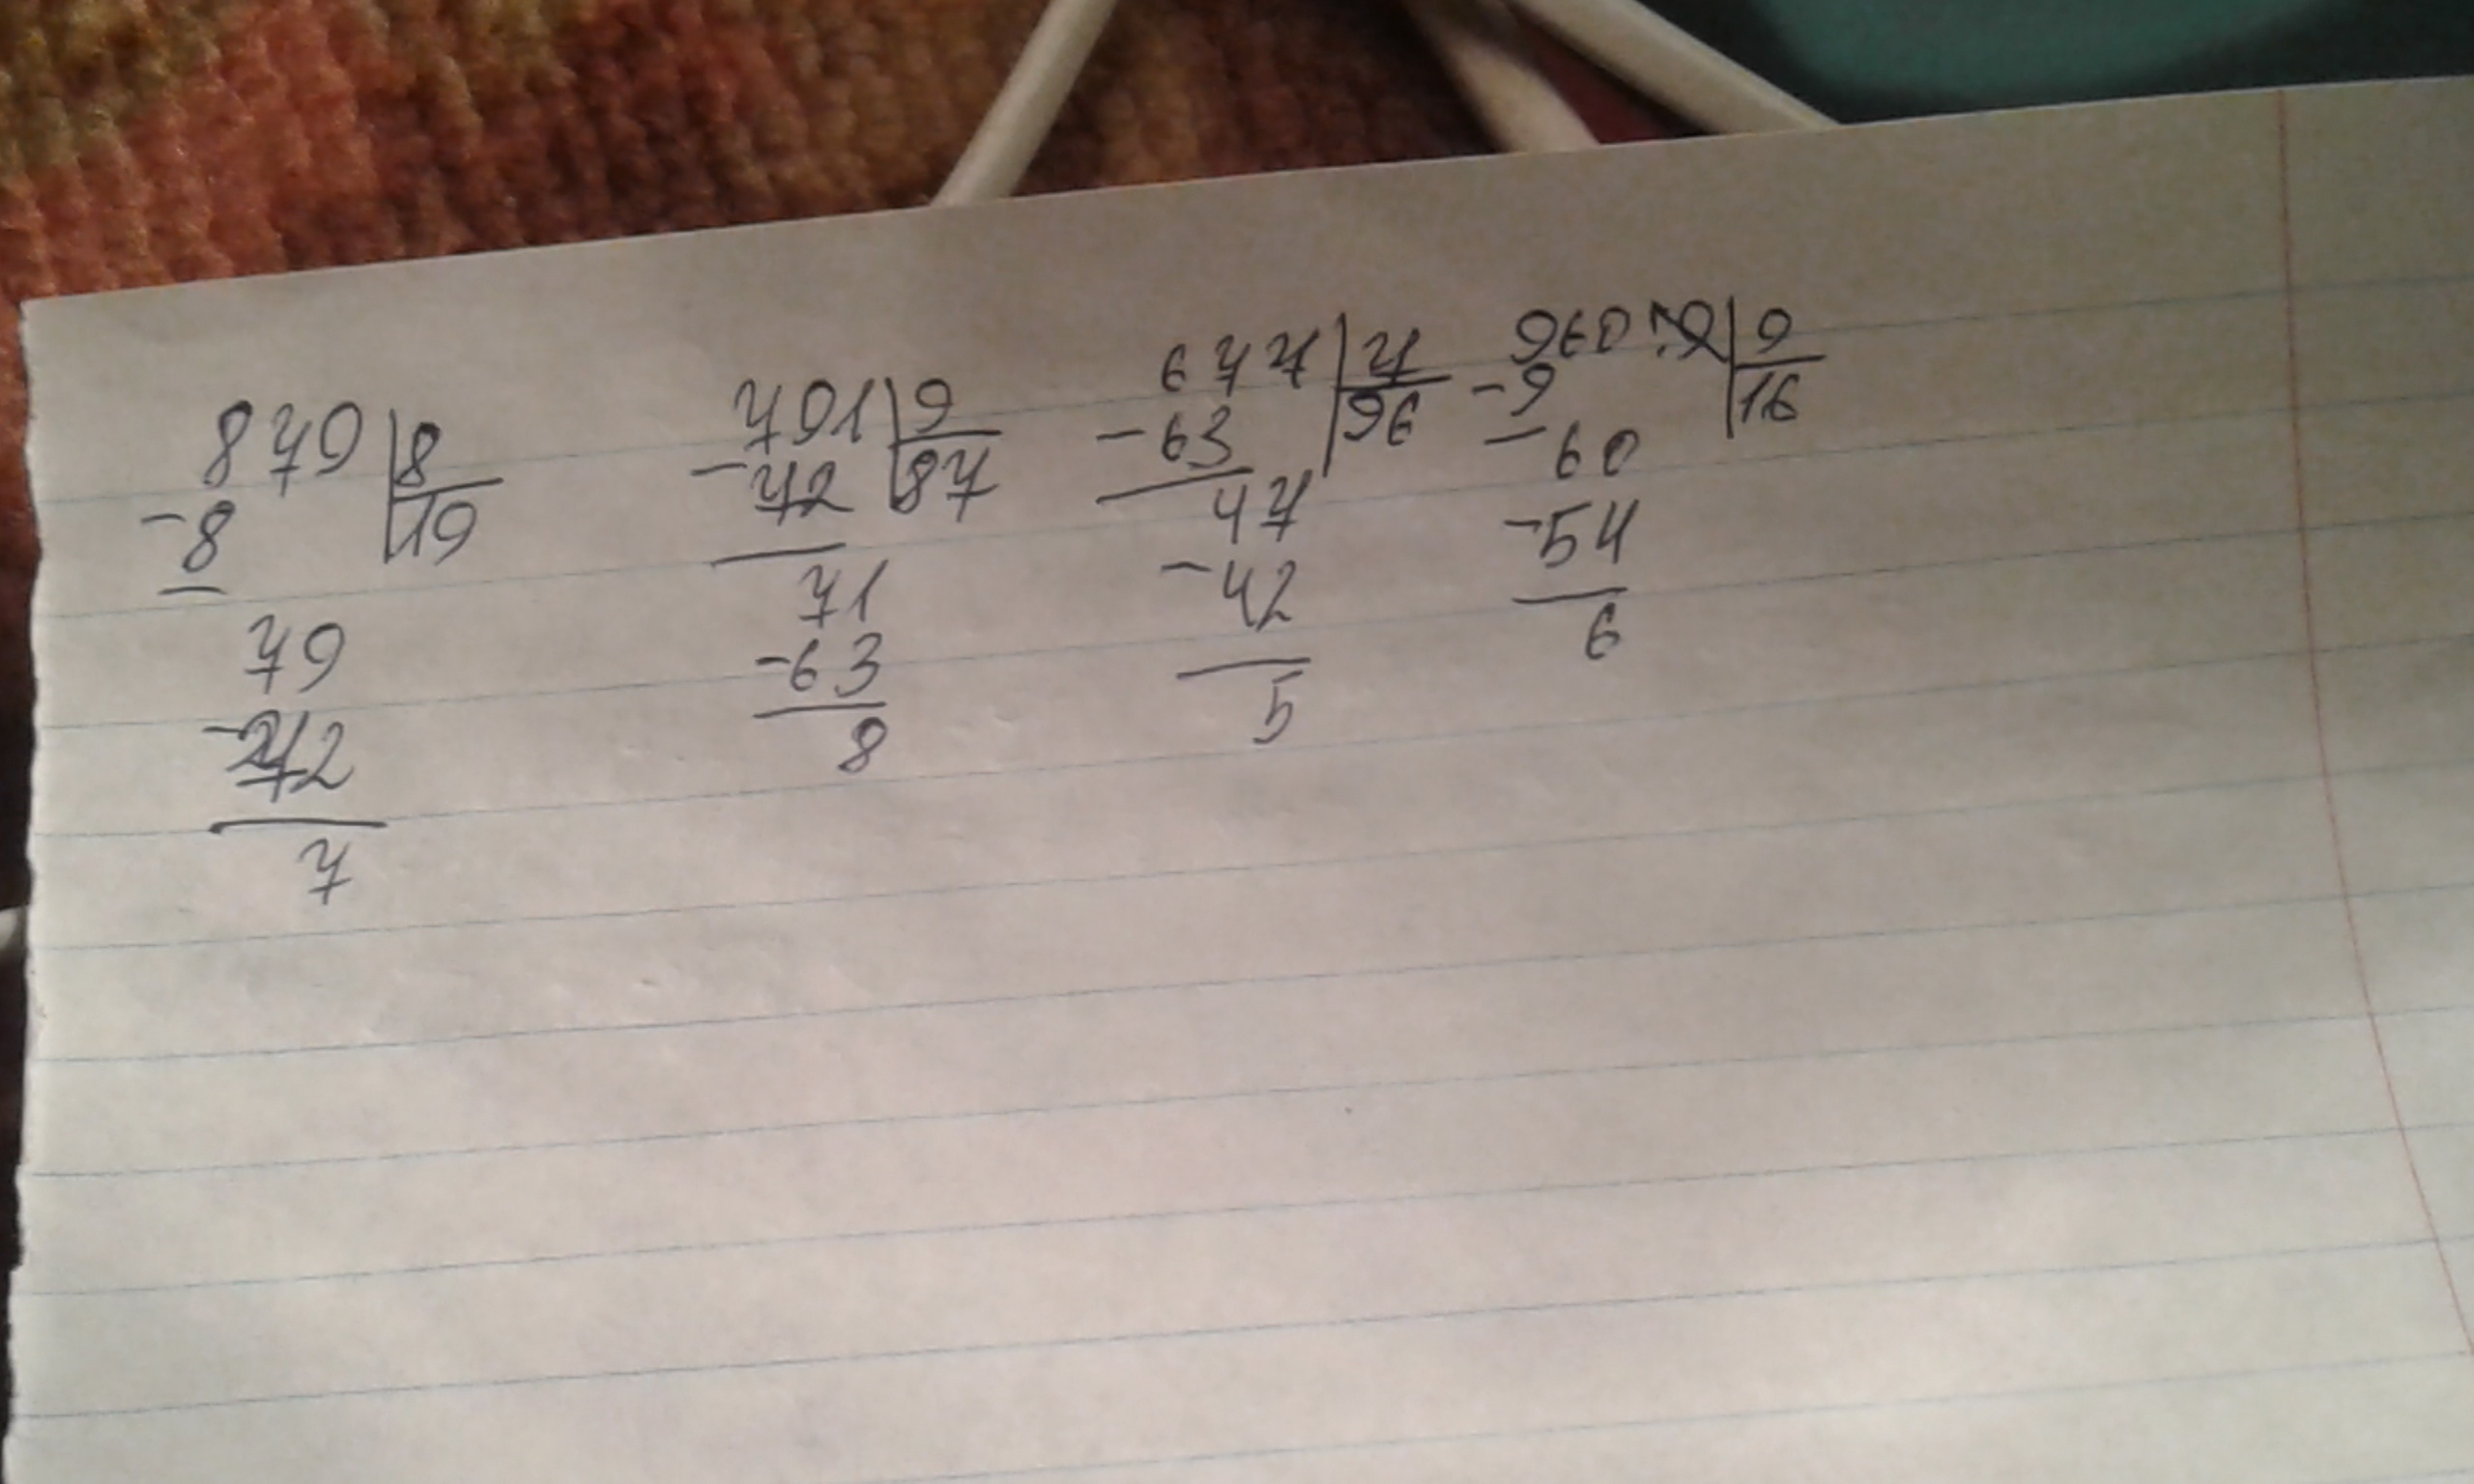 879 | 8
-8 | 19
79
-72
7
791 | 9
-72 | 87
71
-63
8
677 | 7
-63 | 96
47
-42
5
960 | 9
-9 | 16
-60
-54
6